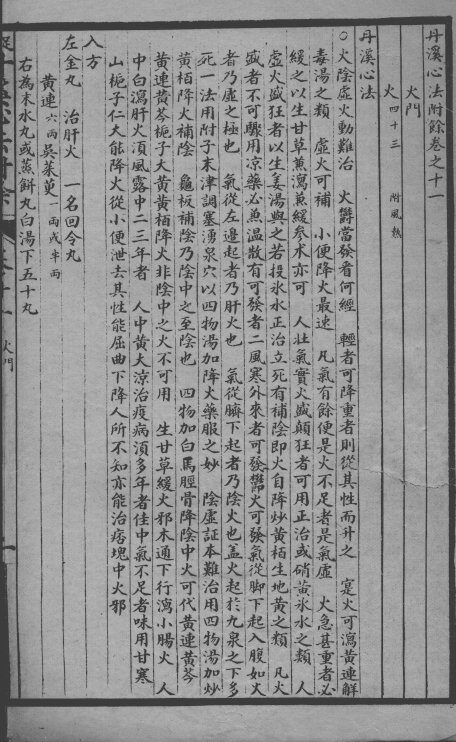 丹溪心法附餘卷之十一
火門
火四十三 附風熱
丹溪心法
○火陰虛火動難治 火欝當發看何經 輕者可降重者則從其性而升之 寔火可瀉黄連解
毒湯之類 虛火可補 小便降火最速 凡氣有餘便是火不足者是氣虛 火急甚重者必
緩之以生甘草兼瀉兼緩参术亦可 人壯氣實火盛顛狂者可用正治或硝黄氷水之類 人
虛火盛狂者以生姜湯與之若投氷水正治立死有補陰即火自降炒黄栢生地黄之類 凡火
盛者不可驟用凉藥必兼温散有可發者二風寒外來者可發欝火可發氣從脚下起入腹如火
者乃虛之極也 氣從左邉起者乃肝火也 氣從臍下起者乃陰火也盖火起扵九泉之下多
死一法用附子末津調塞湧泉穴以四物湯加降火藥服之妙 陰虛証本難治用四物湯加炒
黄栢降火補陰 龜板補陰乃陰中之至陰也 四物加白馬脛骨降陰中火可代黄連黄芩
黄連黄芩栀子大黄黄栢降火非陰中之火不可用 生甘草緩火邪木通下行瀉小腸火 人
中白瀉肝火湏風露中二三年者 人中黄大凉治疫病湏多年者佳中氣不足者味用甘寒
山栀子仁大能降火從小便泄去其性能屈曲下降人所不知亦能治痞塊中火邪
入方
左金丸 治肝火 一名回令丸
黄連六兩 吴茱萸一兩或半兩
右為末水丸或蒸餅丸白湯下五十丸
火門